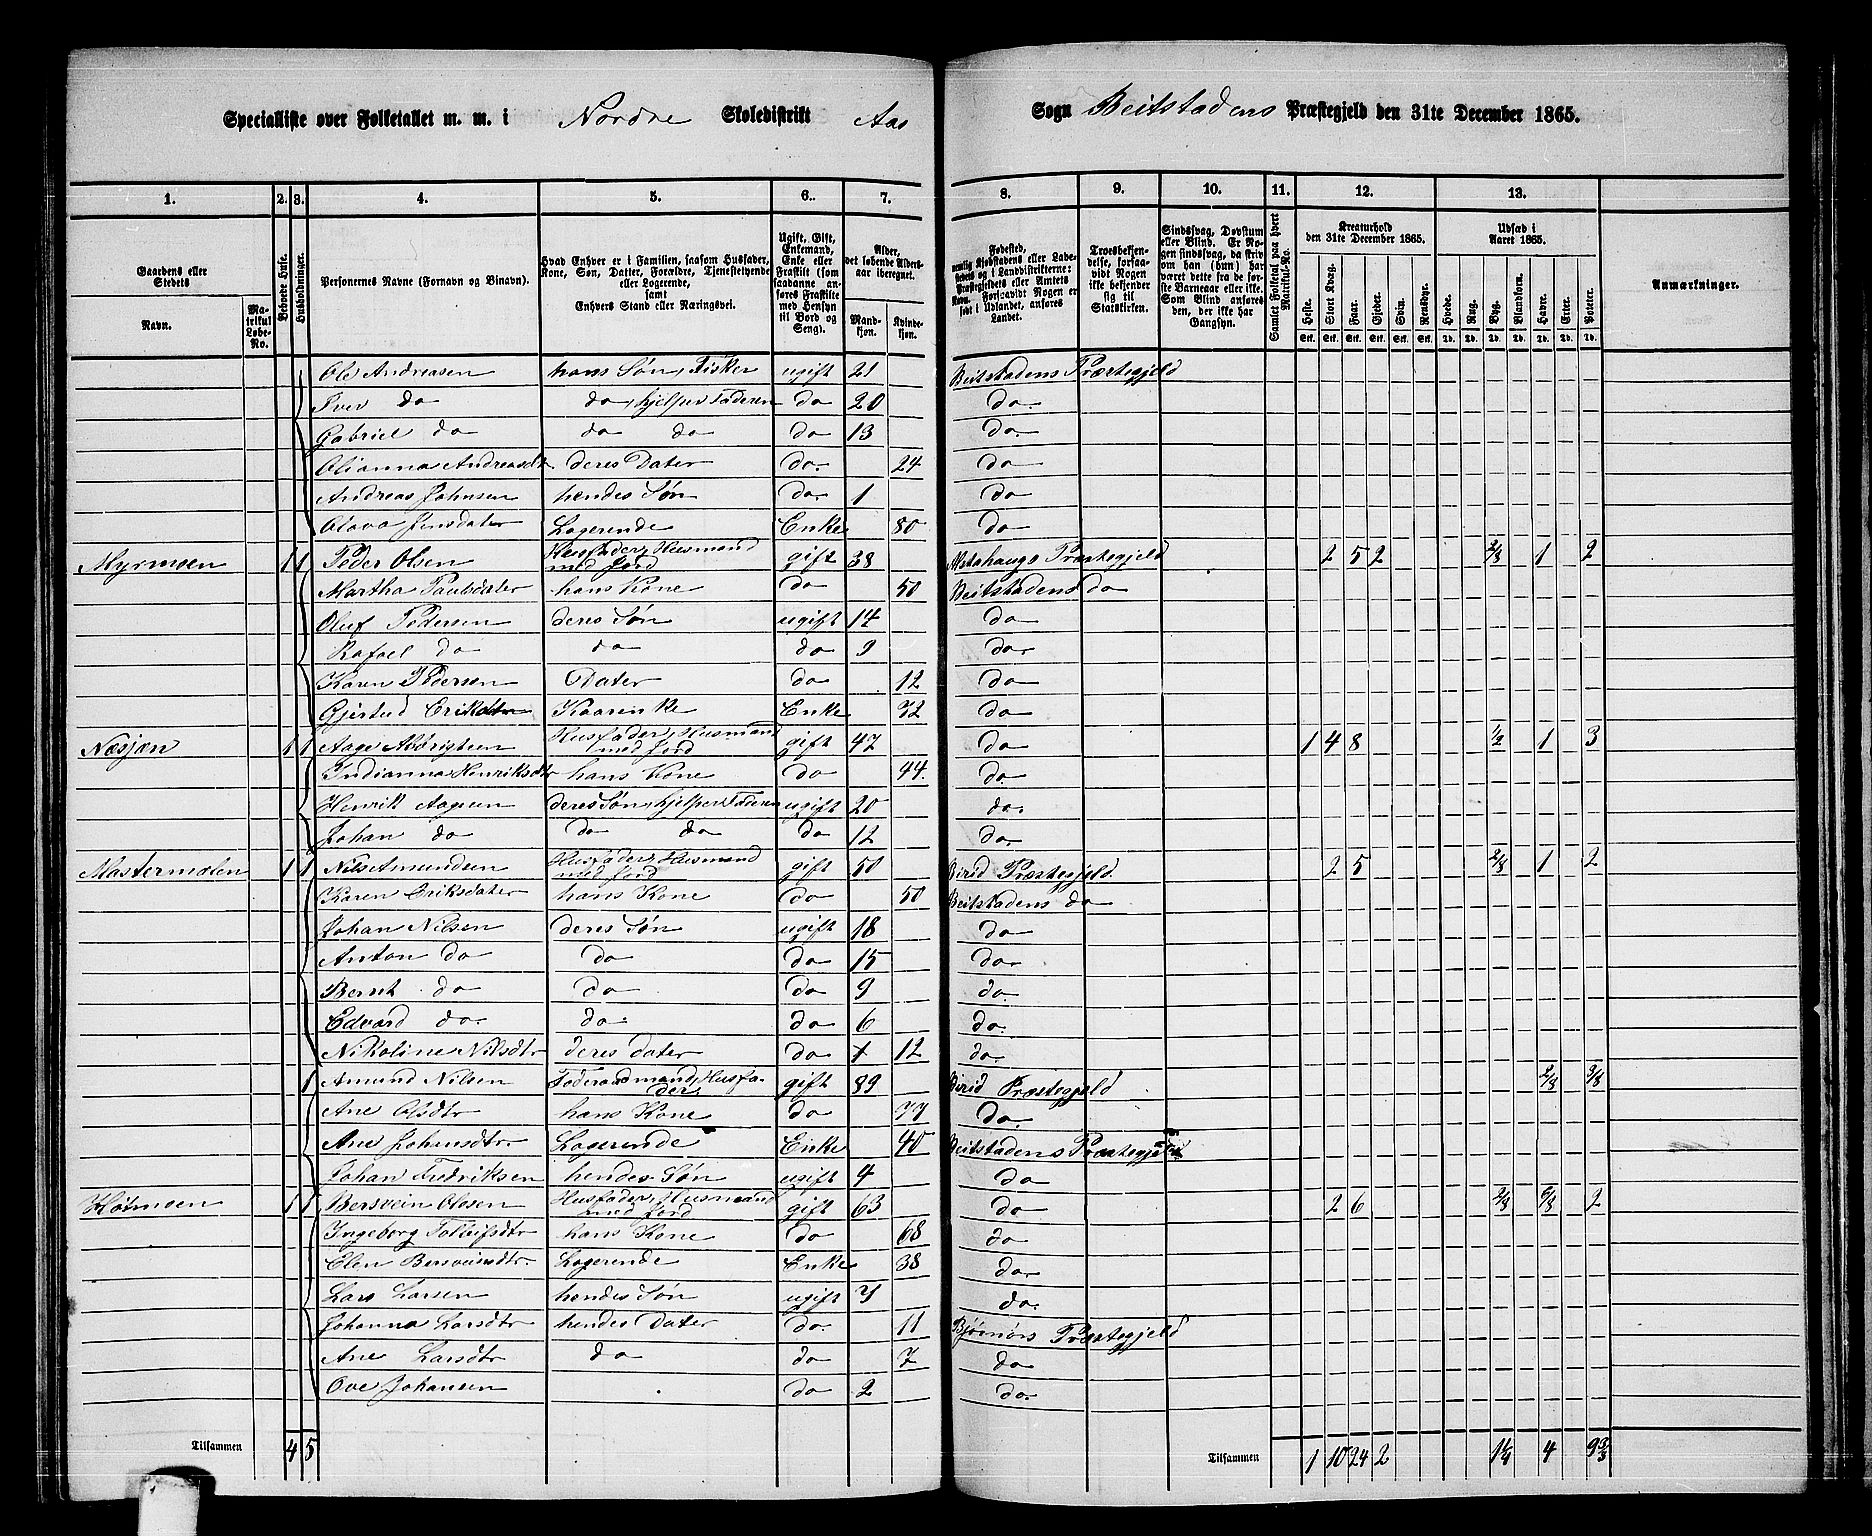 Specialliste over Folketallet m. m. i Nordre Skoledistrikt Aas Sogn Beitstadens Præstegjeld den 31te December 1865.
1. 2. 3. 4. 5. 6. 7. 8. 9. 10. 11. 12. 13.
Gaardens eller Stedets Navn. Matrikul Løbe-No. Beboede Huse. Husholdninger. Personernes Navne (Fornavn og Binavn). Hvad Enhver er i Familien, saasom Husfader, Kone, Søn, Datter, Forældre, Tjenestetyende eller Logerende, samt Enhvers Stand eller Næringsvei. Ugift, Gift, Enkemand, Enke eller Fraskilt (som saadanne anføres Fraskilte med Hensyn til Bord og Seng). Alder, det løbende Aldersaar iberegnet. Mandkjøn. Kvindekjøn.
Fødested, nemlig Kjøbstadens eller Ladestedets og i Landdistrikterne: Præstegjeldets eller Amtets Navn. Forsaavidt Nogen er født i Udlandet, anføres Landet. Troesbekjendelse, forsaavidt Nogen ikke bekjender sig til Statskirken. Sindssvag, Døvstum eller Blind. Er Nogen sindssvag, da skriv om han (hun) har været dette fra de første Barneaar eller ikke. Som Blind anføres den, der ikke har Gangsyn. Samlet Folketal paa hvert Matrikul-No. Kreaturhold den 31te December 1865. Heste. Stort Kvæg. Faar. Gjeder. Svin. Rensdyr. Udsæd i Aaret 1865. Hvede. Rug. Byg. Blandkorn. Havre. Erter. Poteter. Anmærkninger.
Stk. Stk. Stk. Stk. Stk. Stk. Td. Td. Td. Td. Td. Td. Td.
Ole Andreasen hans Søn, Fisker ugift 21 Beitstadens Præstegjeld
Iver do do, hjelper Faderen do 20 do
Gabriel do do do do 13 do
Olianna Andreasdtr deres Dater do 24 do
Andreas Johnsen hendes Søn do 1 do
Olava Jensdater Logerende Enke 80 do
Myrmoen 1 1 Peder Olsen Husfader, Husmand med Jord gift 38 Præstegjeld 2 5 2 2/8 1 2
Martha Paulsdater hans Kone do 50 Beitstadens do
Oluf Pedersen deres Søn ugift 14 do
Rafael do do do 9 do
Karen Pedersen Dater do 12 do
Gjertrud Eriksdtr Kaarenke Enke 72 do
Næsjæn 1 1 Aage Husfader, Husmand med Jord gift 47 do 1 4 8 1/2 1 3
Indianna Henriksdtr hans Kone do 44 do
Henrik Aagesen deres Søn, hjelper Faderen ugift 20 do
Johan do do do do 12 do
Mastermoen 1 1 Nils Amundsen Husfader, Husmand med Jord gift 50 Birid Præstegjeld 2 5 2/8 1 2
Karen Eriksdater hans Kone do 50 Beitstadens do
Johan Nilsen deres Søn ugift 18 do
Anton do do do 15 do
Bernt do do do 9 do
Edvard do do do 6 do
Nikoline Nilsdtr deres dater do 12 do
1 Amund Nilsen Føderaadmand, Husfader gift 89 Birid Præstegjeld 2/8 3/8
Ane Olsdtr hans Kone do 77 do
Ane Johansdtr Logerende Enke 40 Beitstadens Præstegjeld
Johan Fredriksen hendes Søn ugift 4 do
Høimoen 1 1 Bersvein Olesen Husfader, Husmand med Jord gift 63 do 2 6 2/8 6/8 2
Ingeborg Tollefsdtr hans Kone do 68 do
Elen Bersveinsdtr Logerende Enke 38 do
Lars Larsen hendes Søn ugift do
Johanna Larsdtr hendes Dater do 11 Bjørnørs Præstegjeld
Ane Larsdtr do do 7 do
Ove Johansen do 2 do
Tilsammen 4 5 Tilsammen 1 10 24 2 1 1/4 4 9 3/8